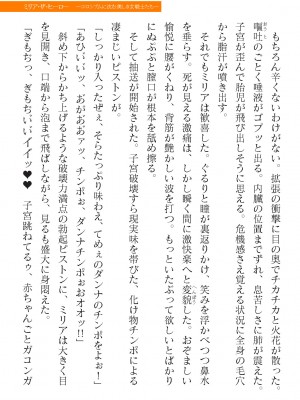 もちろん辛くないわけがない。拡張の衝撃に目の奥でチカチカと火花が散った。
嘔吐のごとく唾液がゴプッと出る。内臓の位置までずれ、息苦しさに肺が震えた。
子宮が歪んで胎児が飛び出しそうに思える。危機感さえ覚える状況に全身の毛穴
から脂汗が噴き出す
それでもミリアは歓喜した。ぐるりと瞳が裏返りかけ、笑みを浮かべつつ鼻水
を垂らす。死が見える激痛は、しかし瞬く間に激快楽へと変貌した。おぞましい
愉悦に腰がくねり、背筋が艶めかしい波を打つ。もっといたぶって欲しいとばかり
にぬぷぷと膣口が根本を舐め擦る。
そして抽送が開始された。子宮破壊すら現実味を帯びた、化け物チンポによる
凄まじいピストンが。
「しっかり入ったぜぇ、そらたっぷり味わえ、てめぇのダンナのチンポをよぉー」
「あひいいッ、おがああァッ、チンポぉ、ダンナチンポぉおオオッ!!」
斜め下からかち上げるような破壊力満点の勃起ピストンに、ミリアは大きく目
を見開き、口端から泡まで飛ばしながら、見るも盛大に身悶えた。
「ぎもぢっ、ぎもぢいいイイッ♥♥　子宮跳ねてるゥ、赤ちゃんごとガコンガ